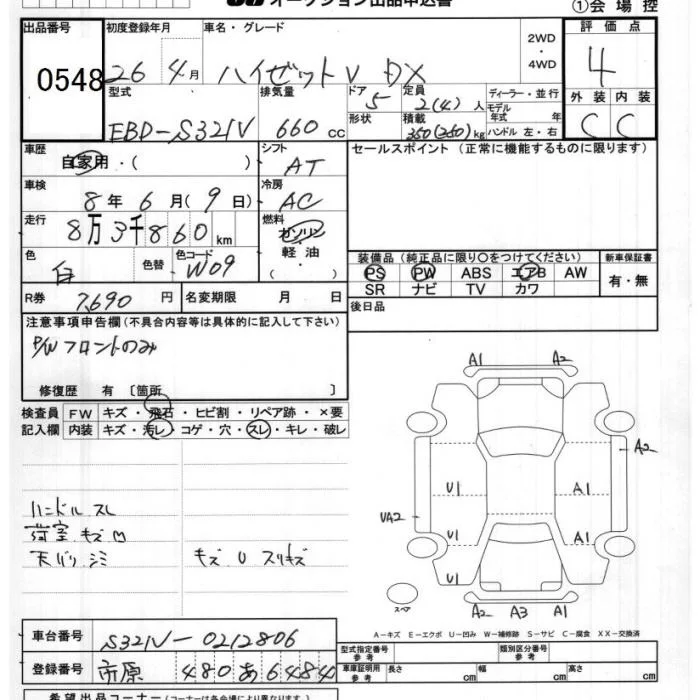 オークション出品申込書
①会場控
出品番号 0548
初度登録年月 26年 4月
車名・グレード ハイゼットV DX
2WD・4WD
評価点 4
型式 EBD-S321V
排気量 660cc
ドア 5
形状
定員 2(4)人
積載 350(250)kg
ディーラー・並行
モデル年式 年
ハンドル 左・右
外装 C
内装 C
車歴 自家用・( )
シフト AT
セールスポイント (正常に機能するものに限ります)
車検 8年 6月(9日)
冷房 AC
走行 8万3千860km
燃料 ガソリン
軽油
( ・ )
色 白
色替
色コード W09
装備品 (純正品に限り○をつけてください)
新車保証書
PS PW ABS エアB AW
有・無
SR ナビ TV カワ
R券 7,690円
名変期限 月 日
後日品
注意事項申告欄(不具合内容等は具体的に記入して下さい)
P/Wフロントのみ
修復歴 有 〔箇所 〕
検査員 FW キズ・飛石・ヒビ割・リペア跡・×要
記入欄 内装 キズ・汚レ・コゲ・穴・スレ・キレ・破レ
ハンドル スレ
荷室 キズ M
天バリ シミ
キズ U スリキズ
A1 A2
A2
U1 A1
UA2
U1 A1
U1
スペア
A2 A3 A1
A-キズ E-エクボ U-凹み W-補修跡 S-サビ C-腐食 XX-交換済
車台番号 S321V-0212806
登録番号 市原 480 あ 6484
型式指定番号 参考
類別区分番号 参考
車庫証明用 参考
長さ cm 幅 cm 高さ cm
希望出品コーナー(コーナーは各会場により異なります。)